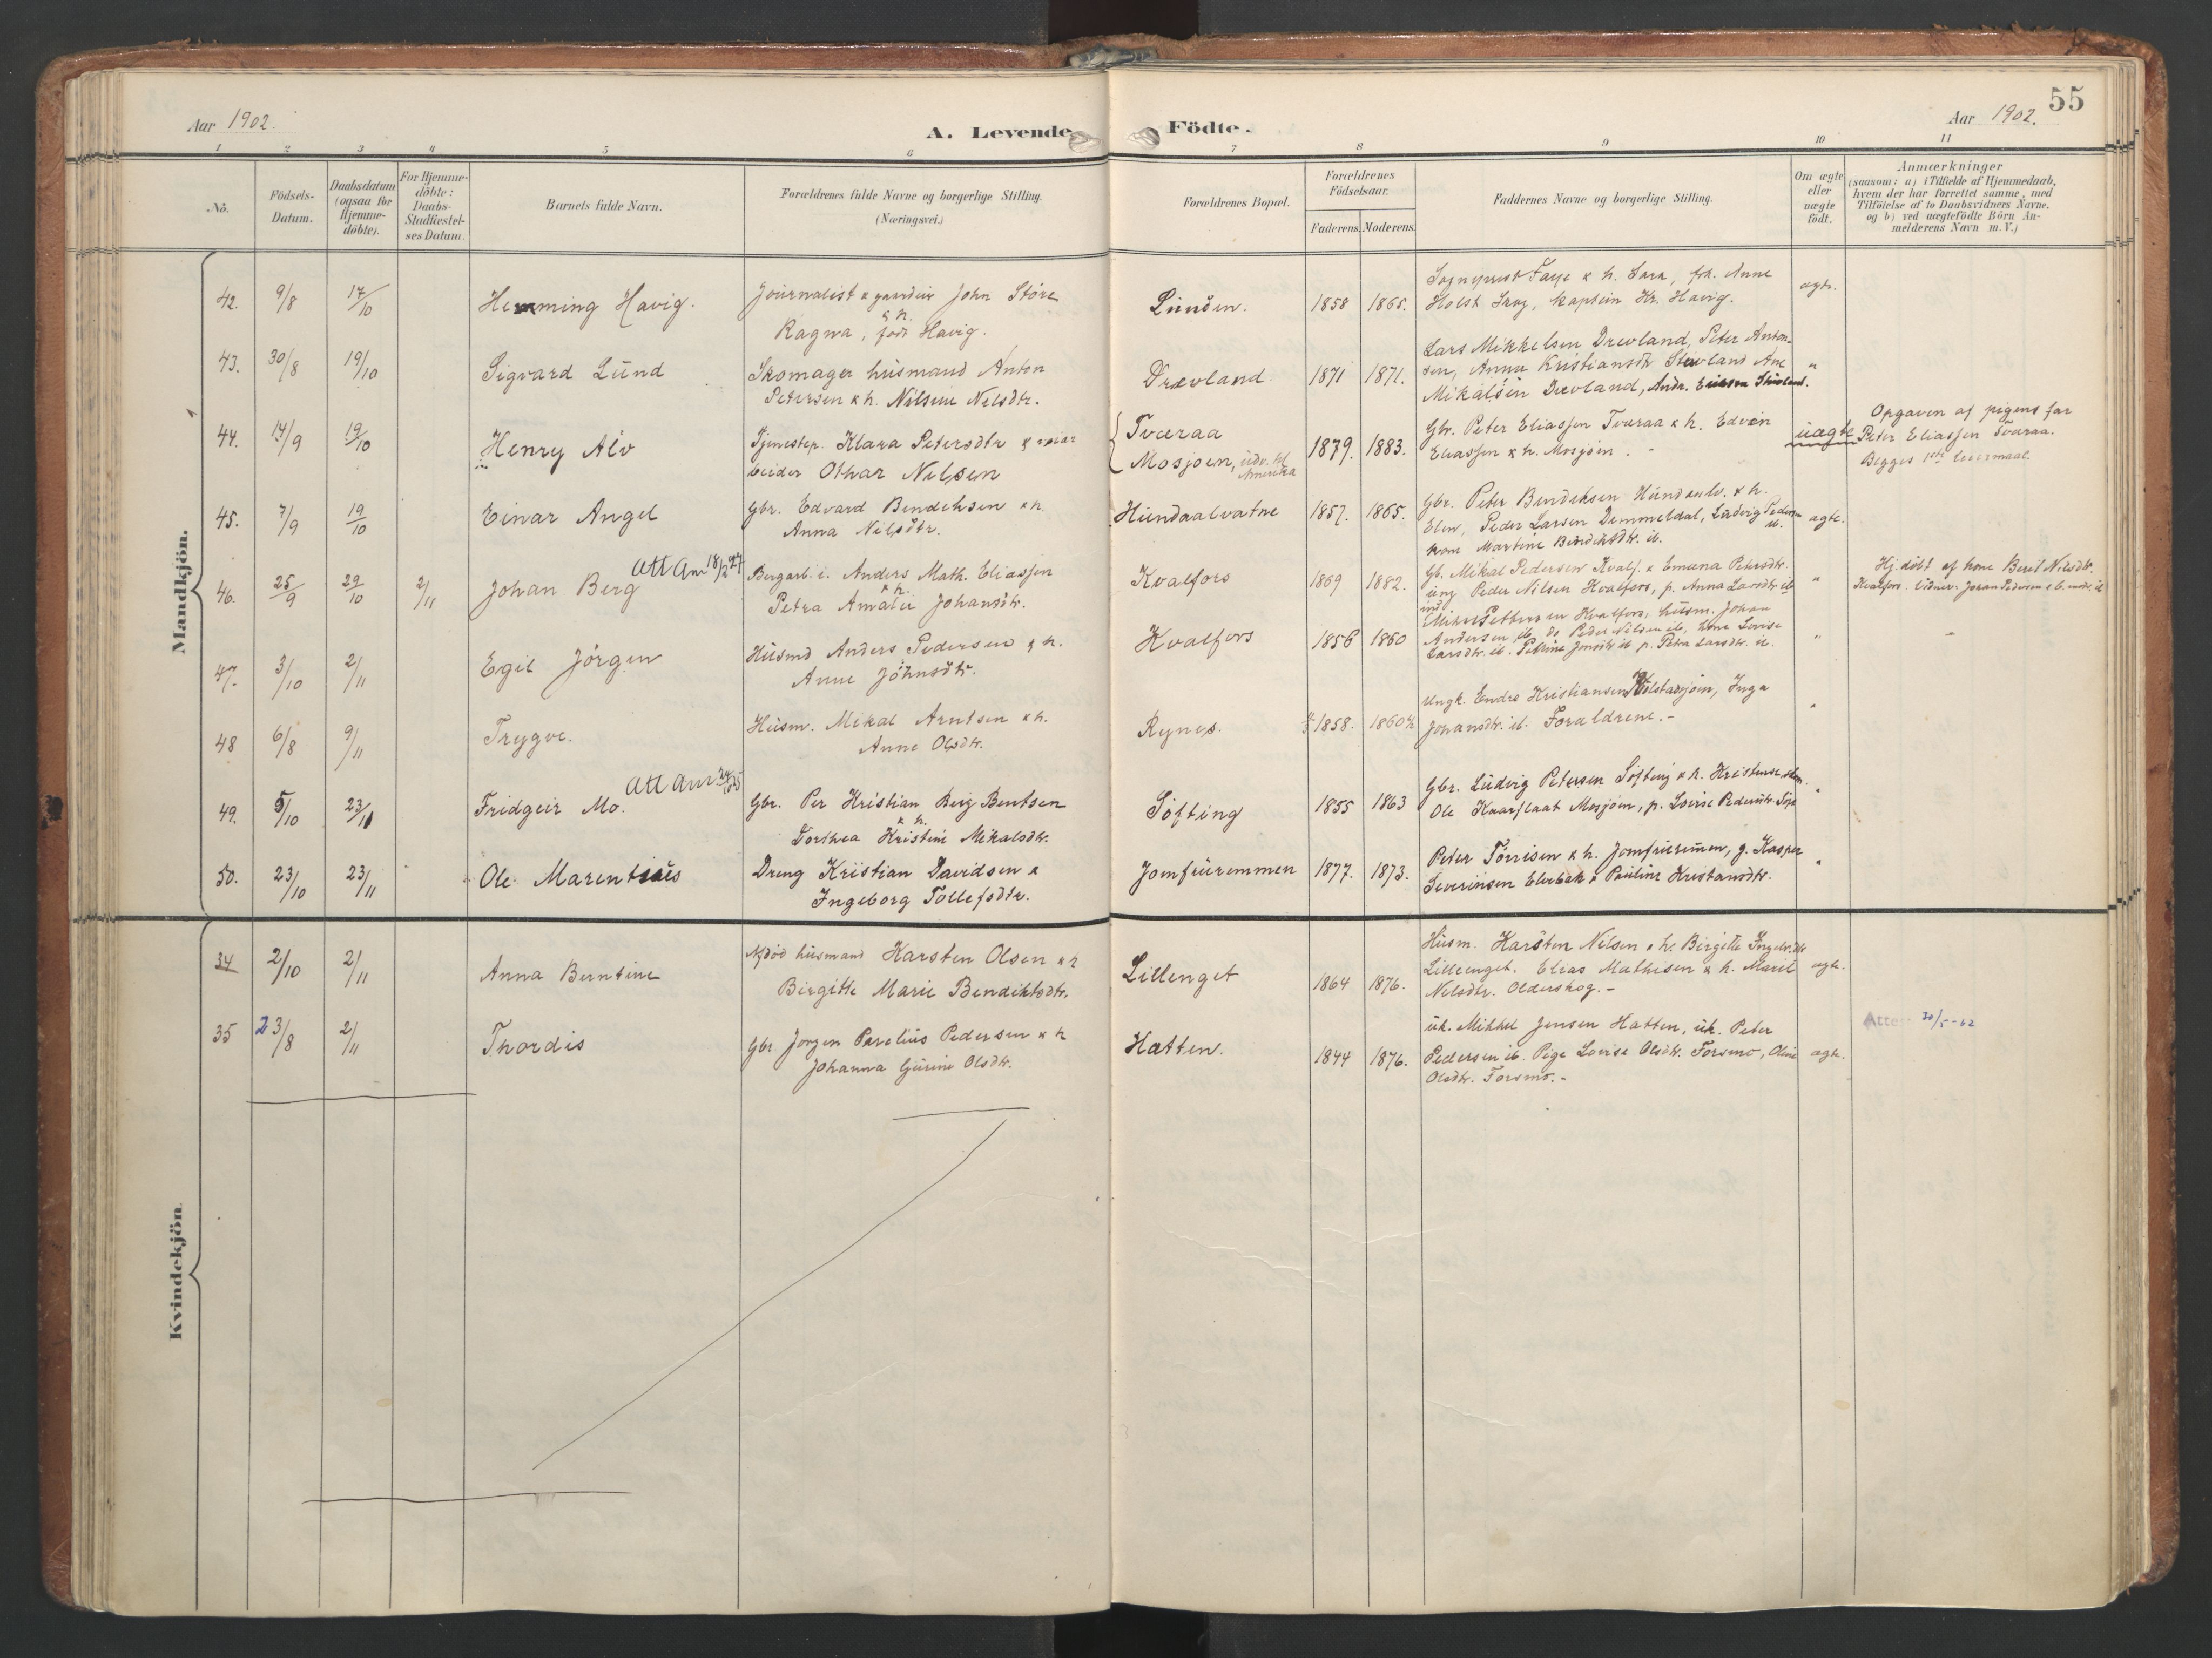 Aar 1902.
A. Levende Födte.
Aar 1902.
55
1 2 3 4 5 6 7 8 9 10 11
No.
Födsels-
Datum.
Daabsdatum
(ogsaa for
Hjemme-
döbte).
For Hjemme-
döbte:
Daabs-
Stadfæstel-
ses Datum.
Barnets fulde Navn.
Forældrenes fulde Navne og borgerlige Stilling.
(Næringsvei.)
Forældrenes Bopæl.
Forældrenes
Födselsaar.
Faderens. Moderens.
Faddernes Navne og borgerlige Stilling.
Om ægte
eller
uægte
födt.
Anmærkninger
(saasom: a) i Tilfælde af Hjemmedaab,
hvem der har forrettet samme, med
Tilföielse af to Daabsvidners Navne.
og b) ved uægtefödte Börn An-
melderens Navn m. V.)
Mandkjön.
42. 9/8 17/10 Hemming Havig.
Journalist & gaardeier John Støre
& h.
Ragna, født Havig.
1858 1865.
Sogneprest Faye & h. Sara, frk. Anne
Holst, kaptein Kr. Havig.
ægte.
43. 30/8 19/10 Sigvard Lund
Skomager husmand Anton
Petersen & h. Nilsine Nelsdtr.
Drevland. 1871 1871.
Lars Mikkelsen Drevland, Peter Anton-
sen, Anne Kristiansdtr. Ane
Mikalsen Drevland,
"
44. 14/9 19/10 Henry Alv
Tjenestep. Klara Petersdtr &
beider Othar Nilsen
Tveraa
Mosjøen, udv. til
Amerika
1879. 1883.
Gbr. Peter Eliassen Tveraa & h. Edvin
Eliassen & h. Mosjøen.
uægte
Opgaven af pigens far
Peter Eliassen Tveraa.
Begges 1ste leiermaal.
45. 7/9 19/10 Einar Angel
Gbr. Edvard Bendiksen & h.
Anna Nilsdtr.
Hundaalvatne 1857. 1865.
Gbr. Peter Bendiksen Hundaalv. & h.
Elen, Peder Larsen Demmeldal, Ludvig Pedersen
ib.
kone Martine Bendiktsdtr. ib.
ægte.
Att Am 18/2 27
46. 25/9 29/10 2/11 Johan Berg
Bergarb. i. Anders Math. Eliassen
& h.
Petra Amalie Johansdtr.
Kvalfors 1869 1882.
Gb. Mikal Pedersen Kvalf. & Emma Petersdtr.
ung Peder Nilsen Kvalfors, p. Anna Larsdtr ib
"
Hj. døbt af kone Beret Nilsdtr.
Kvalfors. Vidner: Johan Pedersen & b. mor ib
47. 3/10 2/11 Egil Jørgen
Husmd Anders Pedersen & h.
Anne Johnsdtr.
Kvalfors 1856 1860
Pettersen Kvalfors, husm. Johan
Andersen ib, do Peder Nilsen ib, kone Lovise
Larsdtr. ib. Petrine Jonsdtr ib p. Petra Larsdtr. ib.
"
48 6/8 9/11 Trygve.
Husm. Mikal Arntsen & h.
Anne Olsdtr.
Rynes. 1858. 1860
Ungk. Endre Kristiansen Inga
Johansdtr. ib. Foraldrene.-
"
Att Am 29/10 25
49. 5/10 23/11 Fridgeir Mo.
Gbr. Per Kristian Berg Bentsen
& h.
Dorthea Kristine Mikalsdtr.
Söfting 1855 1863
Gbr. Ludvig Petersen Söfting & h. Kristense,
Ole Kvarflaat Mosjøen, p. Lovise Pedersdtr.
"
50. 23/10 23/11 Ole Marentius
Dreng Kristian Davidsen &
Ingeborg Tollefsdtr.
Jomfruremmen 1877. 1873.
Peter Tørrisen & h. Jomfruremmen, g. Kasper
Severinsen & Pauline Kristansdtr.
"
Kvindekjön.
34 2/10 2/11 Anna Berntine
Nydöd husmand Karsten Olsen & h
Birgitte Marie Bendiktsdtr.
Lillenget 1864 1876.
Husm. Karsten Nilsen & h. Birgitte
Lilleenget. Elias Mathisen & h. Maril
Nilsdtr. Olderskog.-
ægte.
35 23/8 2/11 Thordis
Gbr Jorgen Parelius Pedersen & h
Johanna Gurine Olsdtr.
Hatten. 1844 1876.
uk. Mikkel Jensen Hatten, uk. Peter
Pedersen ib. Pige Lovise Olsdtr. Forsmo, Oline
Olsdtr. Forsmo.-
ægte.
Attest 30/5-62